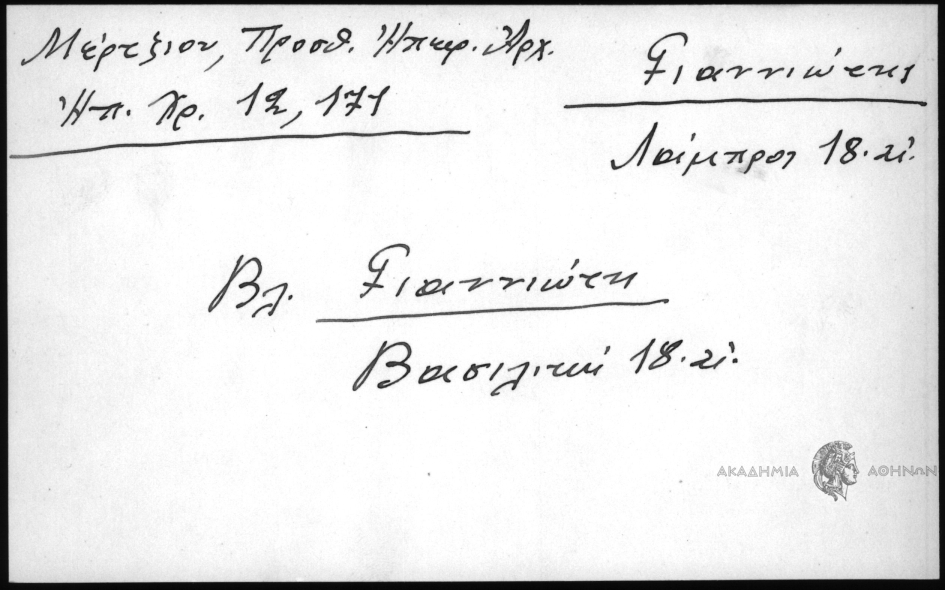 Μέρτζιου, Προσθ. Ἠπειρ. Ἀρχ.
Ἠπ. Χρ. 12, 171
Γιαννιώτης
Λάμπρος 18. αἰ.
Βλ. Γιαννιώτη
Βασιλική 18. αἰ.
ΑΚΑΔΗΜΙΑ ΑΘΗΝΩΝ